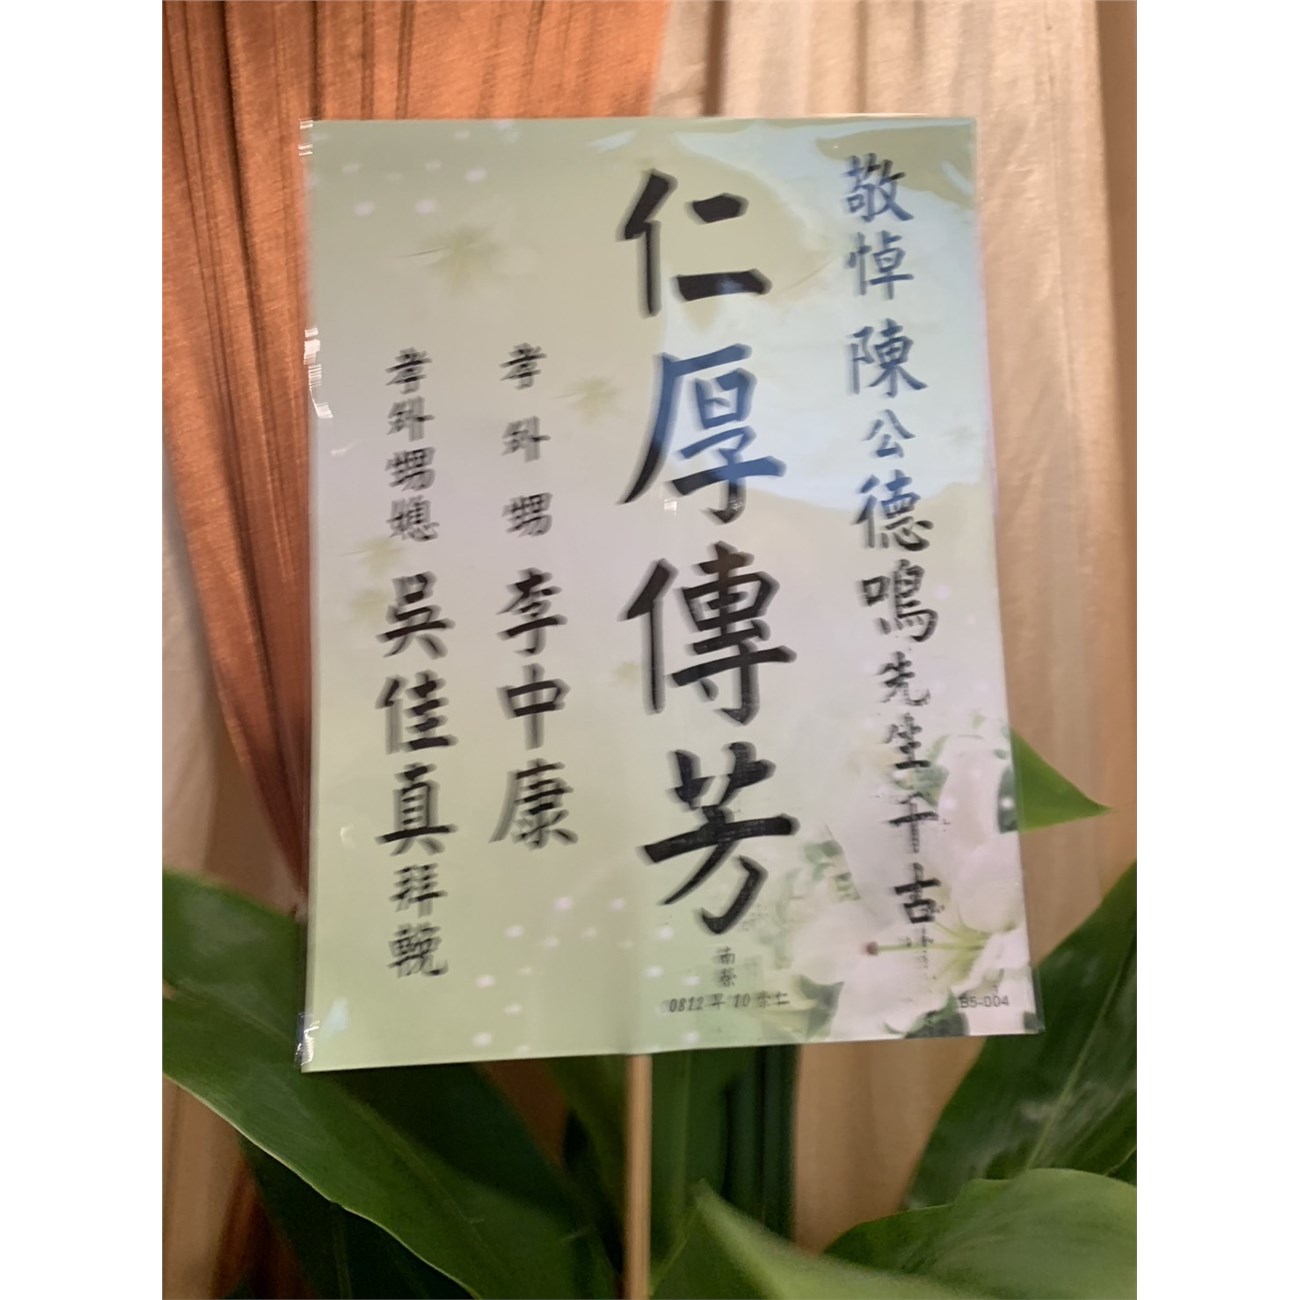 敬悼陳公德鳴先生千古
仁厚傳芳
孝外甥李中康
孝外甥媳吳佳真拜輓
南榮
0812年10崇仁
B5-004